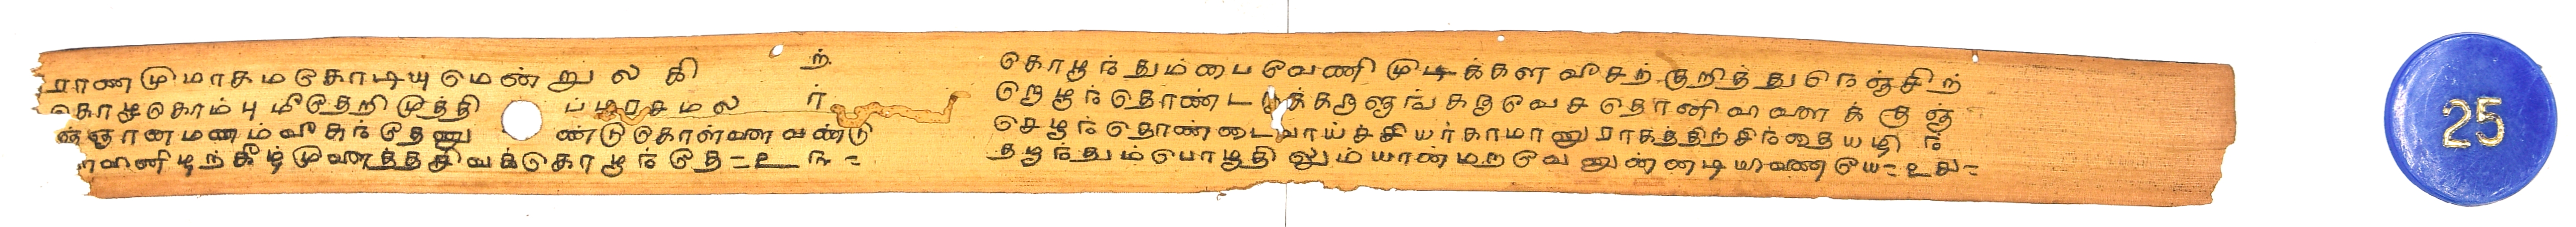 ராணமுமாகமகோடியுமென்றுலகிற்
கொழுகொம்பு மீதேறி முத்தி ப்ழரசமலர்
ன்ஞானமணம்வீசுந்தேனு ண்டுகொள்ளவண்டு
ானிழற்கீழ்முளைத்தசிவக்கொழுந்தே=உந=
கொழுந்தும்பைவேணிமுடிக்கள வீசற்குறித்துநெஞ்சிற்
றெழுந்தொண்ட க்கருணங்கருவேசதொனிவளைக்குஞ்
செழுந்தொண்டைவாய்ச்சியர்காமானுராகத்திற்சிந்தையழிந்
தழுந்தும்பொழுதிலும்யான்மறவேனுன்னடியிணையே=உச=
25